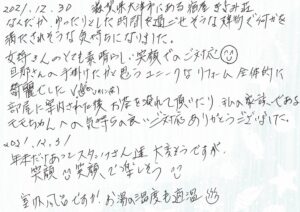 2021.12.30 滋賀県大津市にある旅館きよみ荘
なんだか、ゆったりとした時間を過ごせそうな 何かを
満たされそうな気持ちになりました。
女将さんのとても素晴らしい笑顔でのご対応
旦那さんの手掛けたかと思うユニークなリフォーム 全体的に
綺麗でした
部屋に案内された後、お茶を淹れて頂いたり 私の家族である
モモちゃんへの気持ちの良いご対応ありがとうございました。
2021.12.31
年末だけあってスタッフさん達 大変そうですが
笑顔 笑顔で楽しそう
室外風呂ですが、お湯の温度も適温